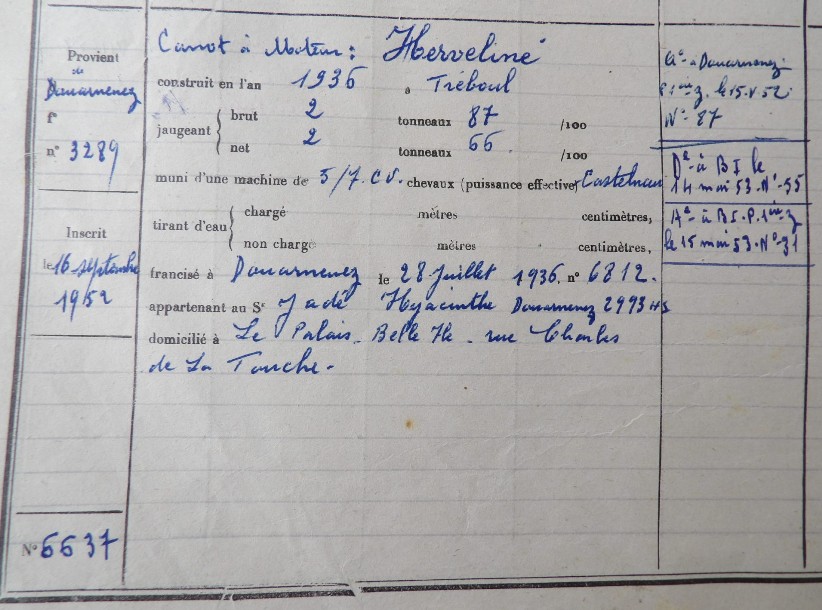 Provient
de
Douarnenez
f°
n° 3289
Inscrit
le 16 septembre
1952
N° 6637
Canot à Moteur: Herveline
construit en l'an 1936 à Tréboul
jaugeant { brut 2 tonneaux 87 /100
net 2 tonneaux 66 /100
muni d'une machine de 5/7 CV. chevaux (puissance effective) Castelnau
tirant d'eau { chargé mètres centimètres,
non chargé mètres centimètres,
francisé à Douarnenez le 28 Juillet 1936. n° 6812.
appartenant au Sr Jadé Hyacinthe Douarnenez 2993 HS
domicilié à Le Palais. Belle Ile. rue Charles
de La Touche.
Aé à Douarnenez
le 15.V.52
N° 87
Dé à BI le
14 mai 53. N° 55
Aé à BI.
le 15 mai 53. N° 31